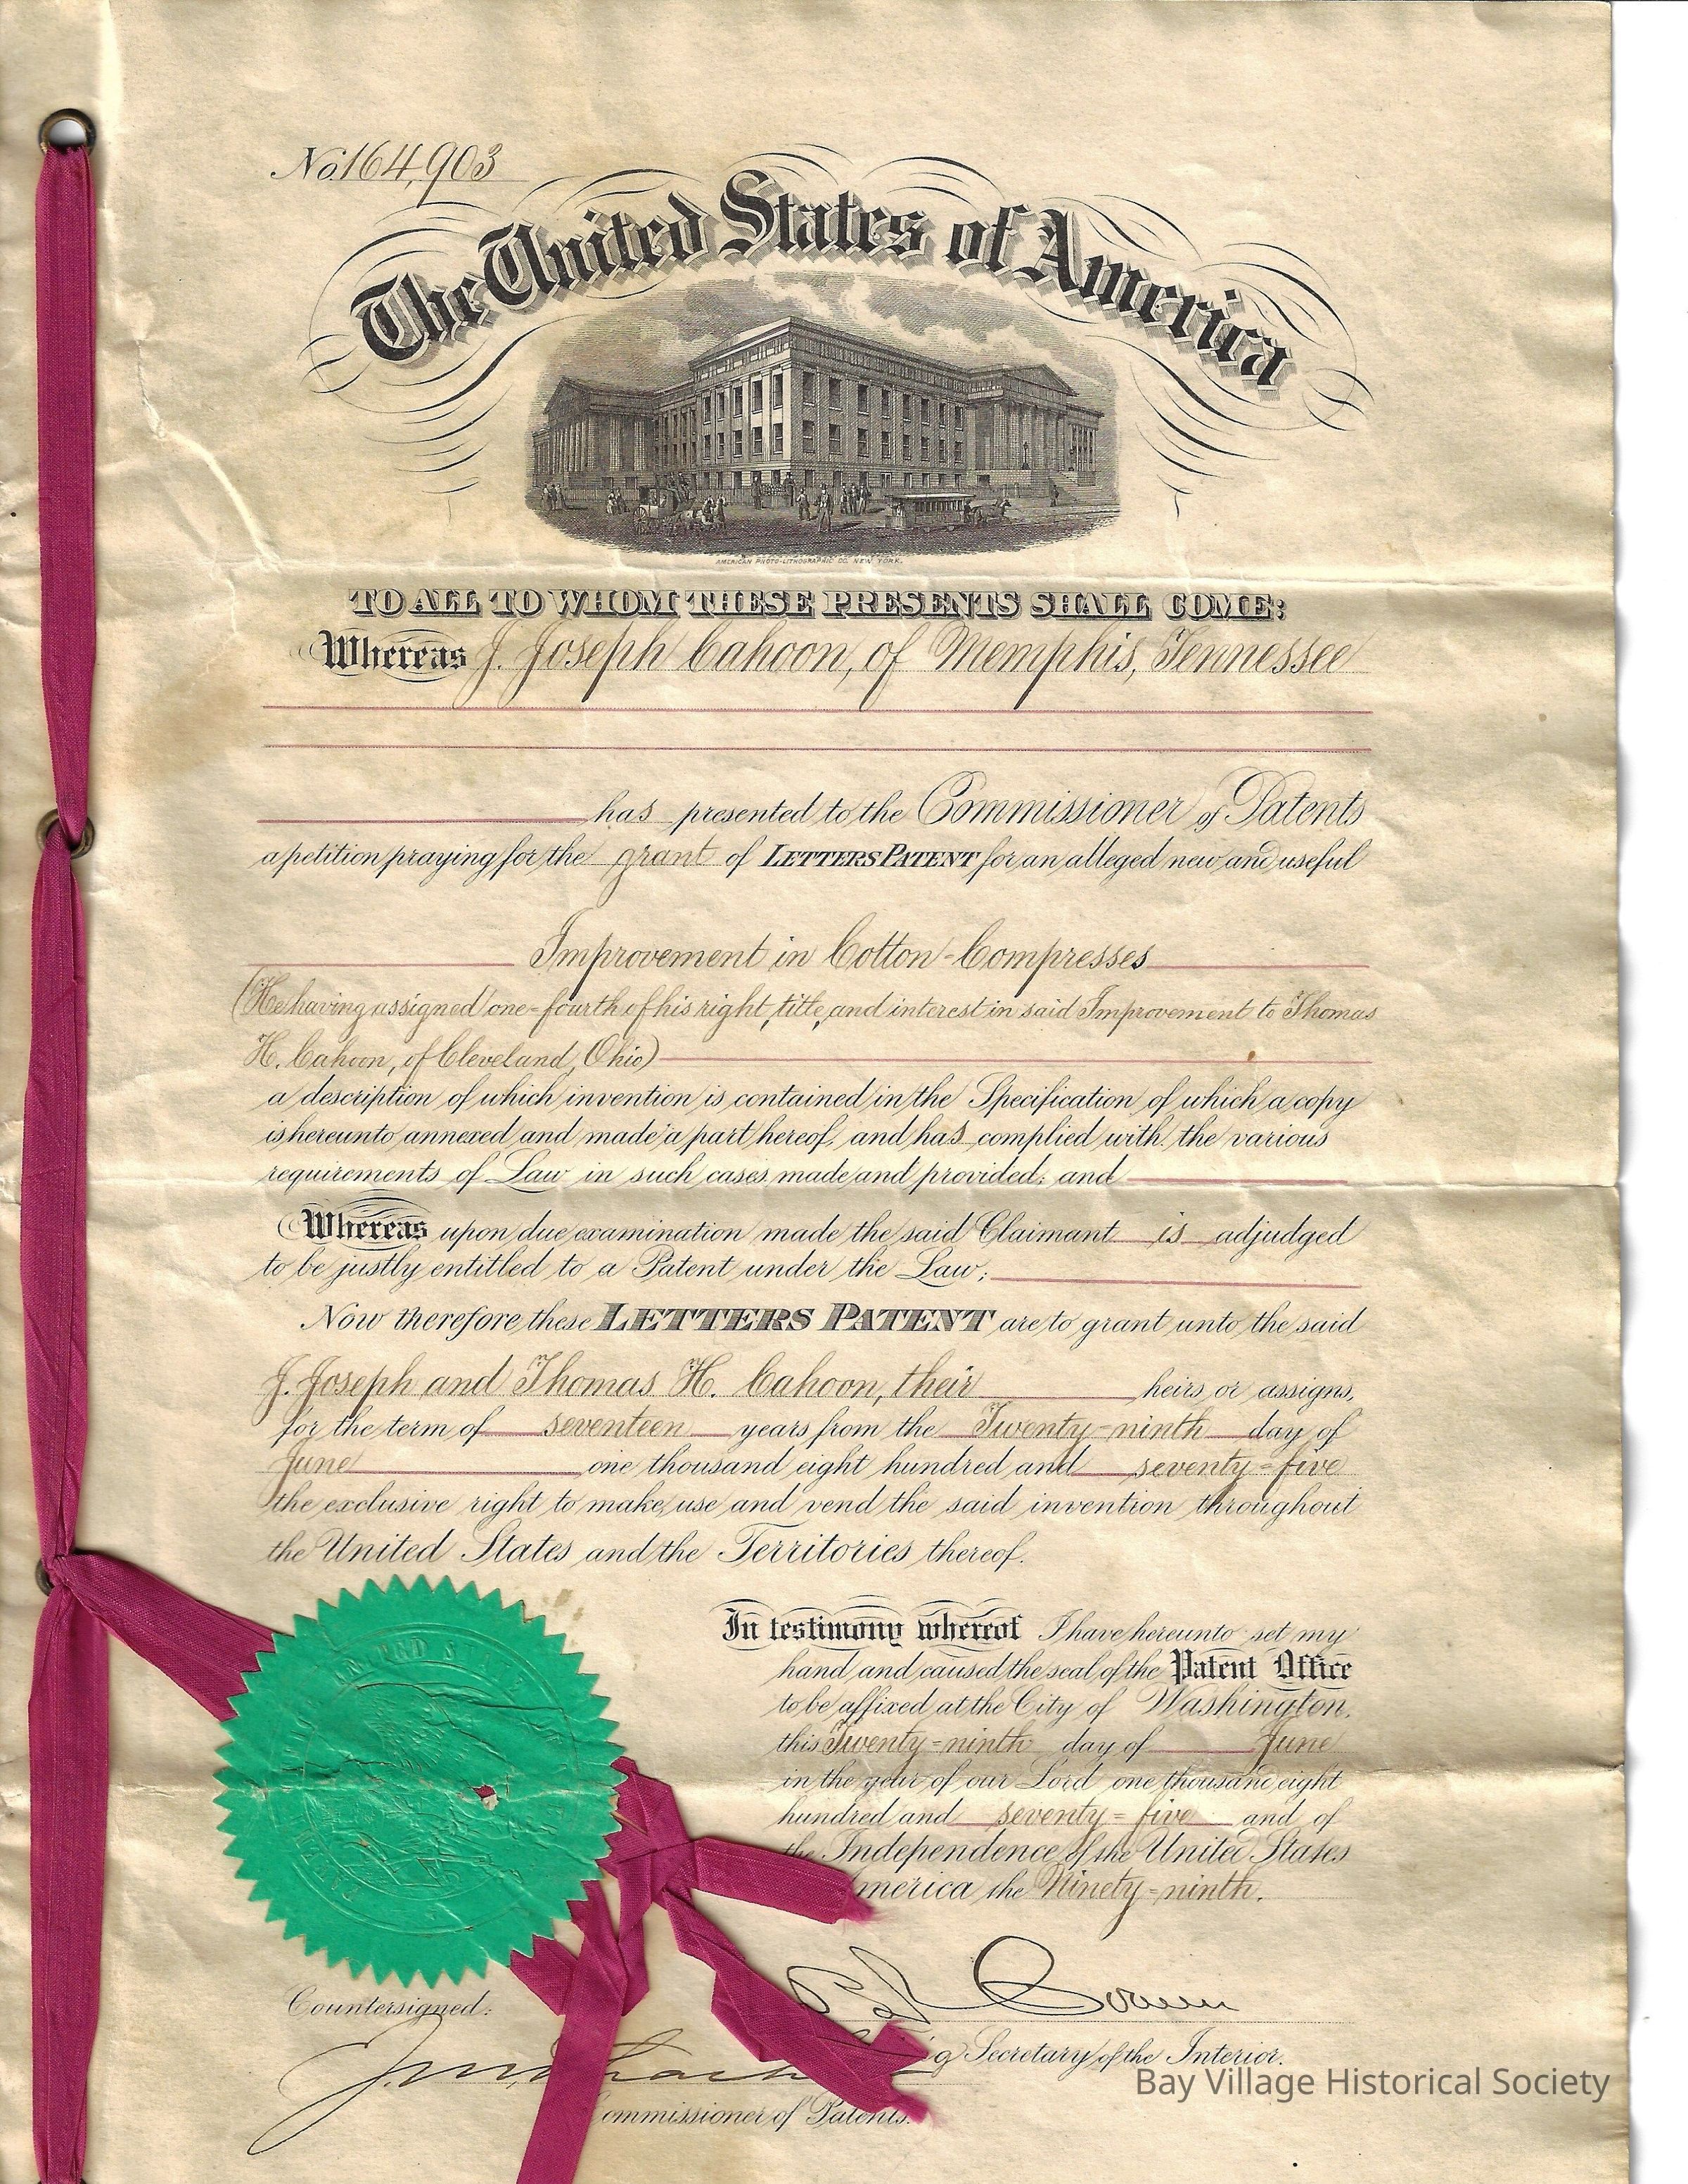 No. 164,903
The United States of America
AMERICAN PHOTO-LITHOGRAPHIC CO. NEW YORK.
TO ALL TO WHOM THESE PRESENTS SHALL COME:
Whereas J. Joseph Cahoon, of Memphis, Tennessee
has presented to the Commissioner of Patents
a petition praying for the grant of LETTERS PATENT for an alleged new and useful
Improvement in Cotton-Compresses
(He having assigned one-fourth of his right, title, and interest in said Improvement to Thomas
H. Cahoon, of Cleveland, Ohio)
a description of which invention is contained in the Specification of which a copy
is hereunto annexed and made a part hereof, and has complied with the various
requirements of Law in such cases made and provided; and
Whereas upon due examination made the said Claimant is adjudged
to be justly entitled to a Patent under the Law;
Now therefore these LETTERS PATENT are to grant unto the said
J. Joseph and Thomas H. Cahoon, their heirs or assigns,
for the term of seventeen years from the Twenty-ninth day of
June one thousand eight hundred and seventy-five
the exclusive right to make, use and vend the said invention throughout
the United States and the Territories thereof.
In testimony whereof I have hereunto set my
hand and caused the seal of the Patent Office
to be affixed at the City of Washington,
this Twenty-ninth day of June
in the year of our Lord one thousand eight
hundred and seventy-five and of
the Independence of the United States
merica the Ninety-ninth.
Countersigned:
g Secretary of the Interior.
ommissioner of Patents.
Bay Village Historical Society